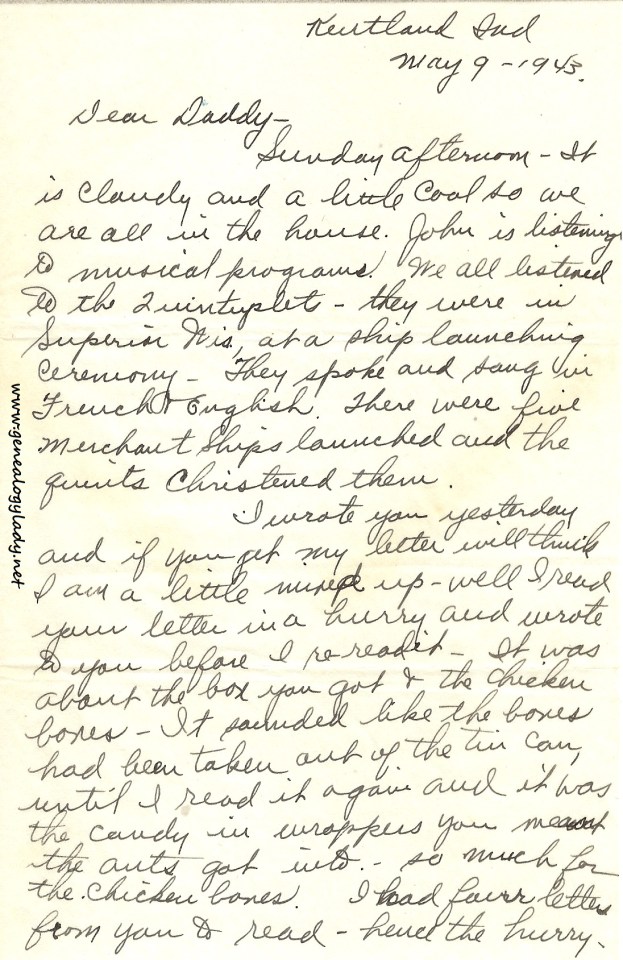 Kentland Ind
May 9 - 1943.
Dear Daddy -
Sunday afternoon - It
is cloudy and a little cool so we
are all in the house. John is listening
to musical programs. We all listened
to the Quintuplets - they were in
Superior Wis, at a ship launching
ceremony - They spoke and sang in
French & English. There were five
Merchant Ships launched and the
quints Christened them.
I wrote you yesterday
and if you get my letter will think
I am a little mixed up - well I read
your letter in a hurry and wrote
to you before I re-read it - It was
about the box you got & the chicken
bones - It sounded like the bones
had been taken out of the tin can,
until I read it again and it was
the candy in wrappers you meant
the ants got into. - so much for
the chicken bones. I had four letters
from you to read - hence the hurry -
www.genealogylady.net